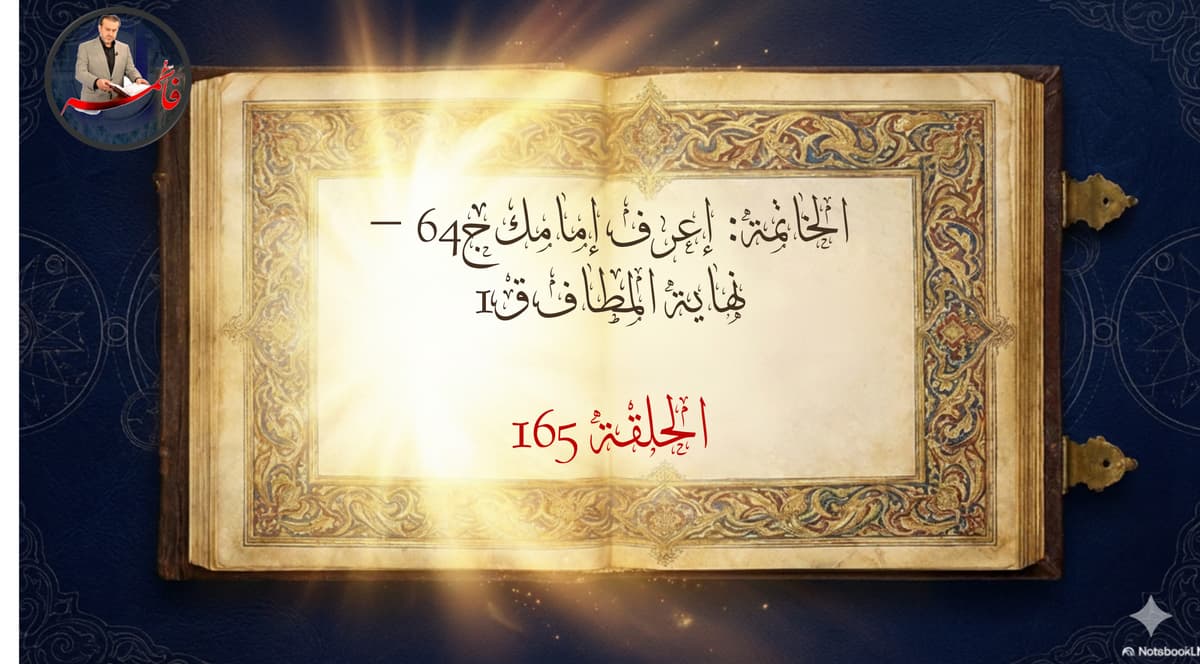 فاطمة
الخاتمة: إعرف إمامك ج64 –
نهاية المطاف ق1
الحلقة 165
NotsbookLM